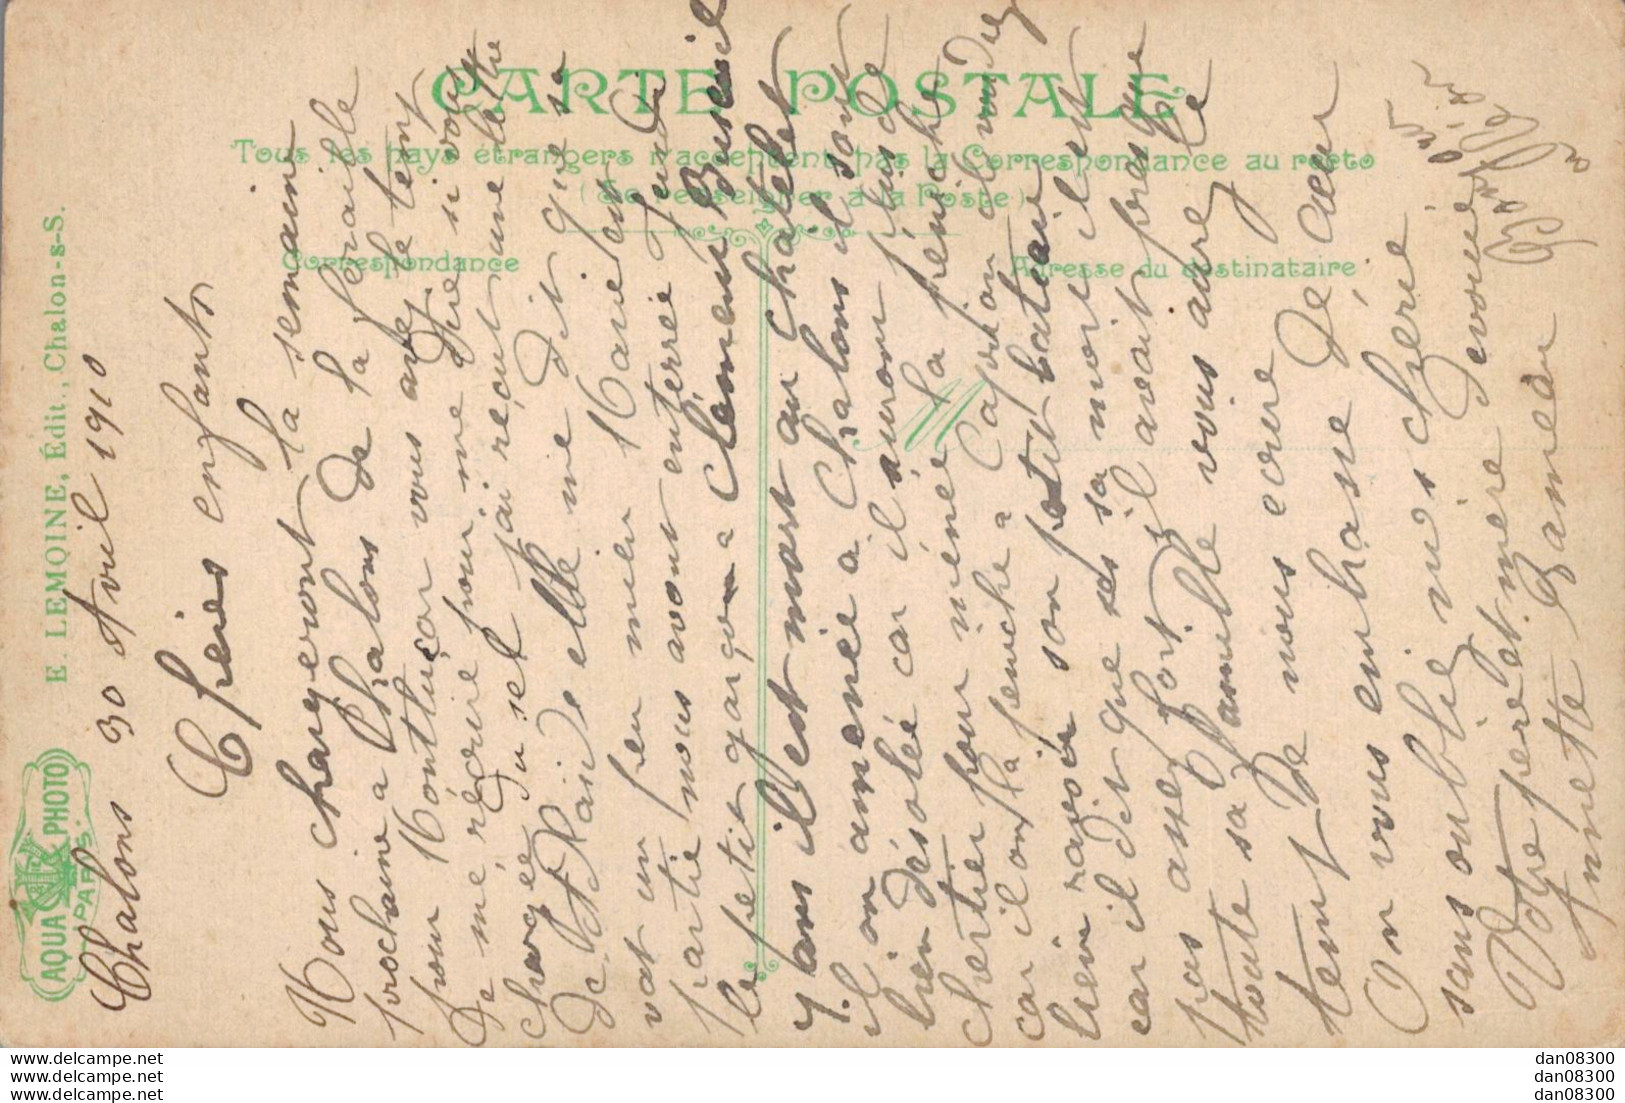 CARTE POSTALE
Tous les pays étrangers n'acceptent pas la Correspondance au recto
(Se renseigner à la Poste)
Correspondance
Adresse du destinataire
M
E. LEMOINE, Édit., Chalon-s-S.
AQUA PHOTO
PARIS
Chalons 30 Avril 1910
Chéres enfants
Nous chargeront la semaine
prochaine a Chalons de la feraille
pour Montluçon vous avez le temp
de me récrire pour me dire si vous
chargée du sel j'ai récut une lettre
de elle me dit que sa
vat un peu mieu Marie est
partie nous avont enterrée jeudi
le petit garçon a Clément Buscuil
7 ans il est mort au Chatelet
il on amenée a Chalons il sont
bien désolée car il auron plus de
chertier pour méné la péniche
car il on la peniche a
bien son petit bateau
car il dit que sa mort il est
pas assez fort il avait presque
toute sa famille vous aurez le
temp de nous ecrire
On vous embrasse de cœur
sans oublié nos chérie
Votre père et mère devouée